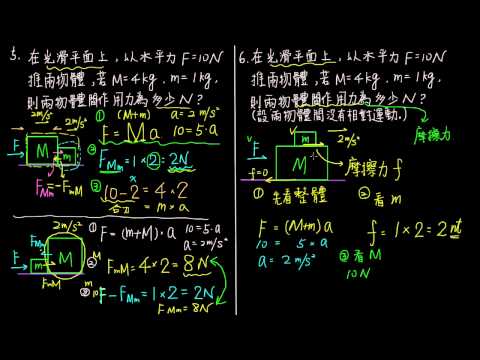 5. 在光滑平面上，以水平力 F=10N
推兩物體，若 M=4kg，m=1kg，
則兩物體間作用力為多少 N？
2m/s²
2m/s²
F
M
m
F_Mm = -F_mM
① (M+m)
F = Ma
a=2m/s²
10=5·a
② F_Mm = 1×2=2N
③ 10-2=4×2
合力 = m×a
2m/s²
F
m
M
F_Mm
F_mM
① F=(m+M)·a
10=5·a
a=2m/s²
② M
F_mM=4×2=8N
③ m
10
F-F_Mm=1×2=2N
F_Mm=8N
6. 在光滑平面上，以水平力 F=10N
推兩物體，若 M=4kg，m=1kg，
則兩物體間作用力為多少 N？
(設兩物體間沒有相對運動。)
摩擦力
V
m
2m/s²
V
F
M
f=0
摩擦力 f
① 先看整體
F=(M+m)a
10 = 5×a
a=2m/s²
② 看 m
f=1×2=2nt
③ 看 M
10N